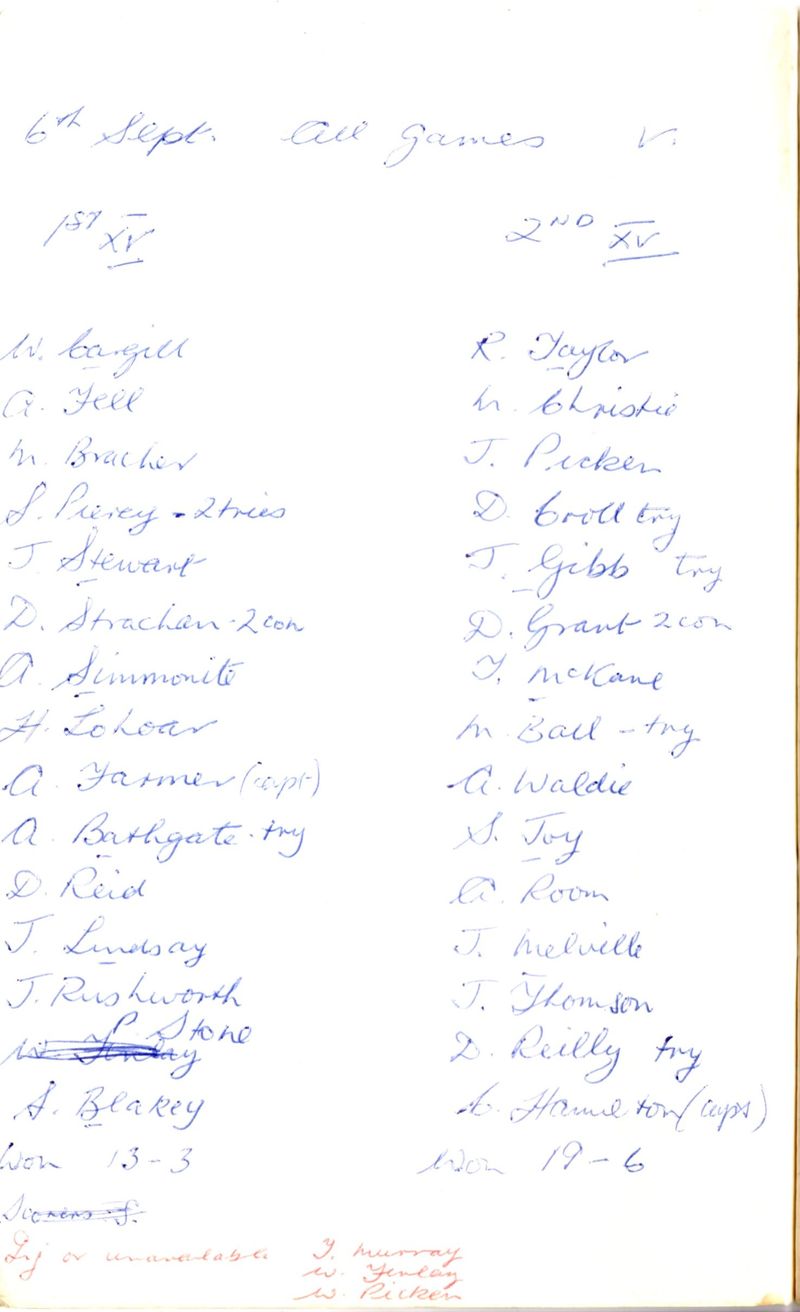 6th Sept. All Games V.
1ST XV 2ND XV
W. Cargill R. Taylor
A. Fell M. Christie
M. Bracher J. Picken
S. Piercy - 2 tries D. Croll try
J Stewart J. Gibb try
D. Strachan - 2 con D. Grant 2 con
A. Simmonite T. McKane
H. Lohoar M. Ball - try
A. Farmer (capt) A. Waldie
A. Bathgate - try S. Joy
D. Reid A. Room
J. Lindsay J. Melville
J. Rushworth J. Thomson
P. Stone
W. Finlay D. Reilly try
S. Blakey C. Hamilton (capt)
Won 13-3 Won 19-6
Scorers S.
Inj or unavailable T. Murray
W. Finlay
W. Picken